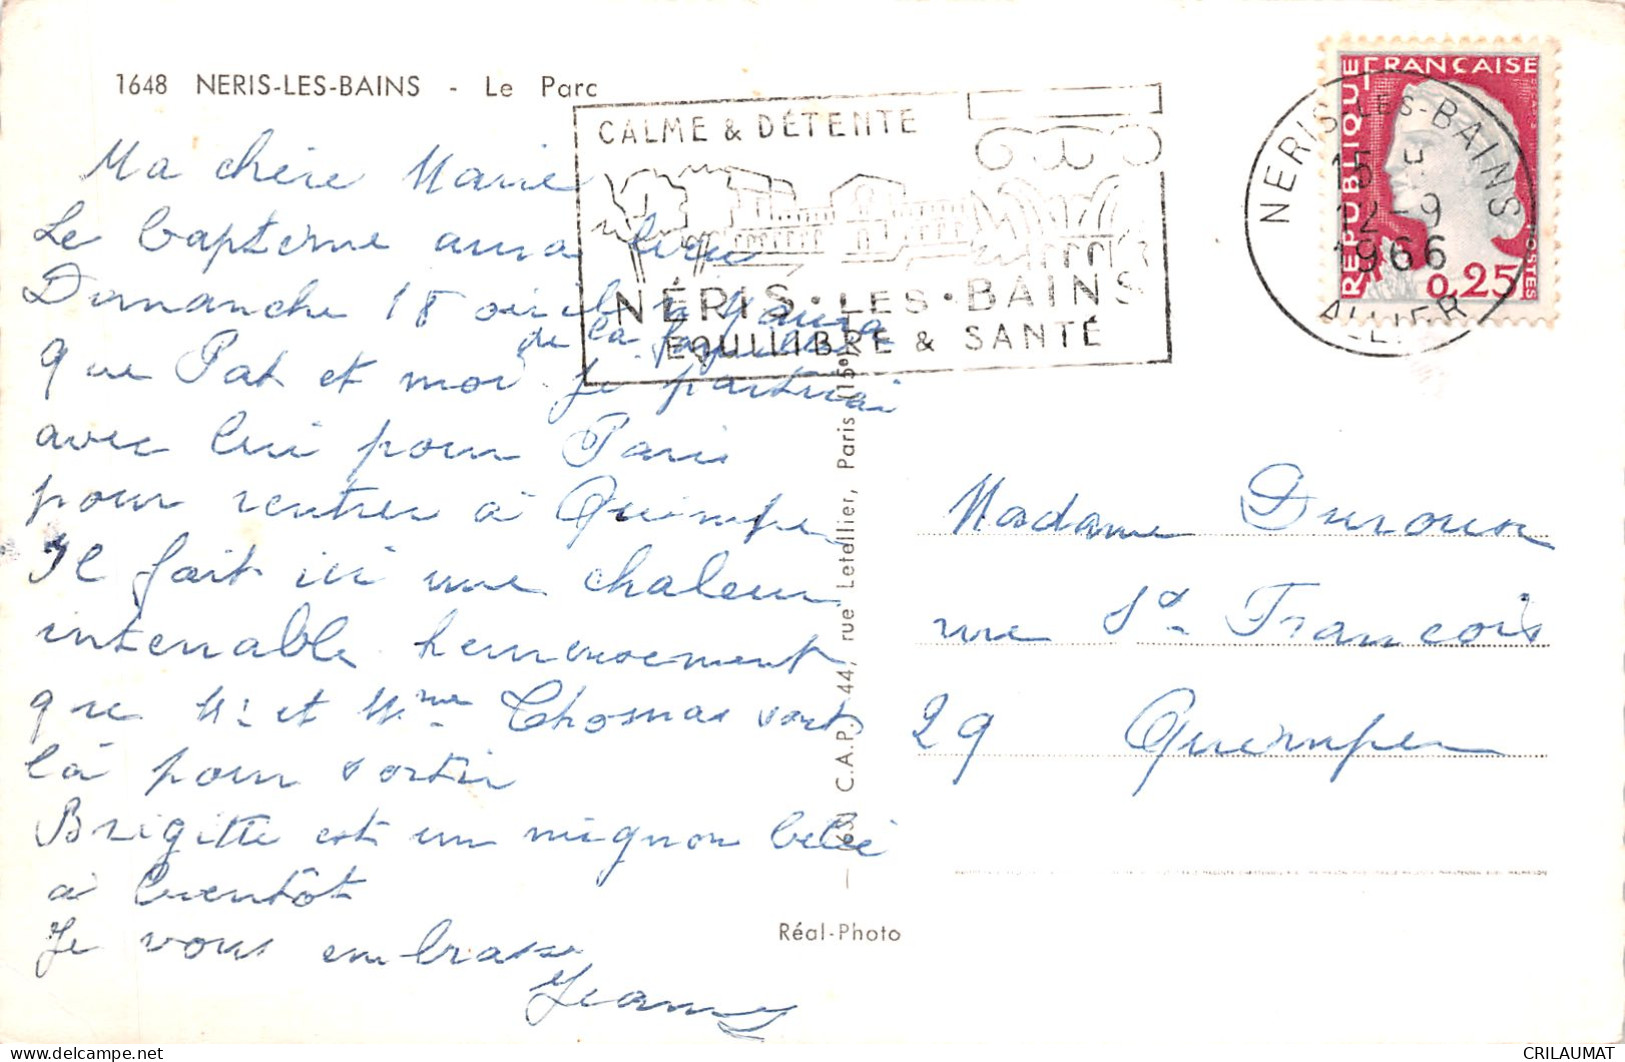 1648 NERIS-LES-BAINS - Le Parc
CALME & DÉTENTE
NÉRIS • LES • BAINS
EQUILIBRE & SANTÉ
NERIS-LES-BAINS
15 H
12-9
1966
ALLIER
REPUBLIQUE FRANCAISE
POSTES
0,25
Ma chère Marie
Le baptème aura lieu
Dimanche 18 il n'y aura
de la famille
que Pat et moi je partirai
avec lui pour Paris
pour rentrer à Quimper
Il fait ici une chaleur
intenable heureusement
que Mr et Mme Thomas sont
là pour sortir
Brigitte est un mignon bébé
à bientôt
Je vous embrasse
Jeanny
C.A.P. 44, rue Letellier, Paris (15e)
Réal-Photo
Madame Duroux
rue St Francois
29 Quimper
CRILAUMAT